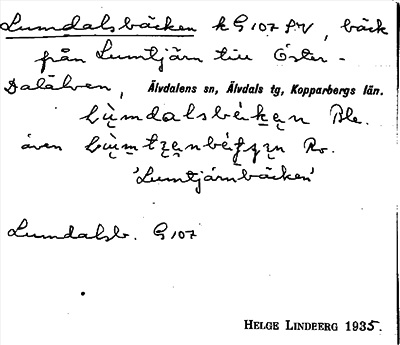 Lumdalsbäcken k G 107 SV, bäck
från Lumtjärn till Öster-
Dalälven, Älvdalens sn, Älvdals tg, Kopparbergs län.
även
'Lumtjärnbäcken'
Lumdalsb. G 107
HELGE LINDBERG 1935.